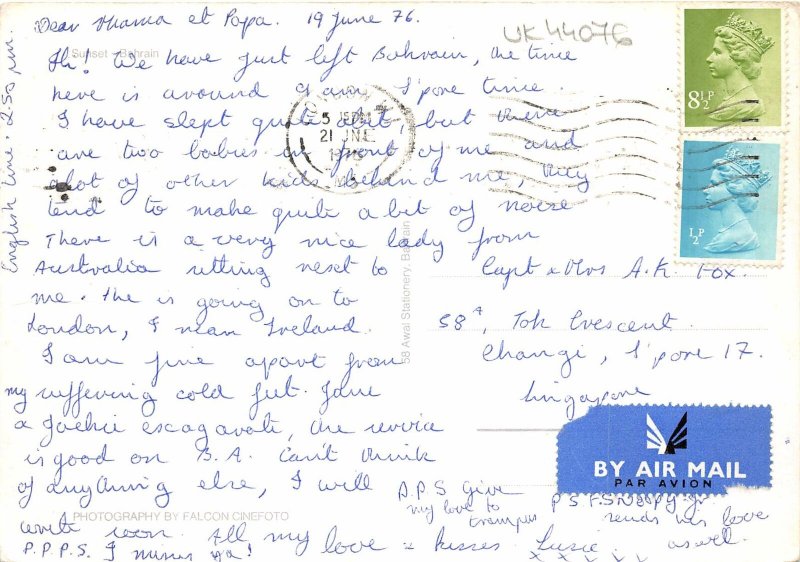 Dear Mama et Papa. 19 June 76.
UK44076
Sunset - Bahrain
Hi! We have just left Bahrain, the time
here is around 9 am. S'pore time.
I have slept quite abit, but there
are two babies in front of me and
alot of other kids behind me, they
tend to make quite a bit of noise
There is a very nice lady from
Australia sitting next to
me. She is going on to
London, I mean Ireland.
I am fine apart from
my suffering cold feet. Jane
a
the service
is good on B.A. Can't think
of anything else, I will
write soon. All my love & kisses Susie.
x x x x x
English time: 2.50 am.
P.S F. Snoopy Jr
sends his love
as well.
P.P.S Give
my love to
P.P.P.S. I misses ya!
PHOTOGRAPHY BY FALCON CINEFOTO
58 Awal Stationery, Bahrain
5 15PM
21 JNE
8½P
½P
Capt & Mrs A.K Fox.
58A, Toh Crescent.
Changi, S'pore 17.
Singapore
BY AIR MAIL
PAR AVION